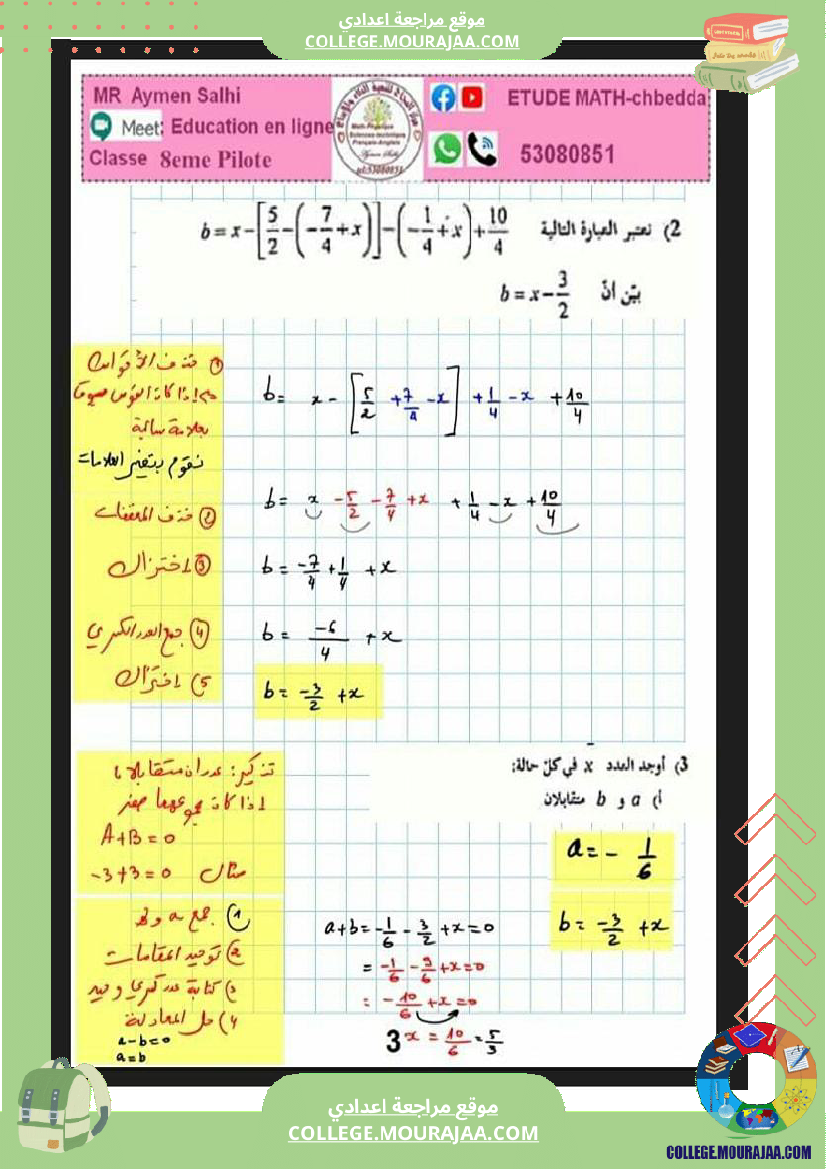 موقع مراجعة اعدادي
COLLEGE.MOURAJAA.COM
MR Aymen Salhi
Meet: Education en ligne
Classe 8eme Pilote
ETUDE MATH-chbedda
53080851
2) نعتبر العبارة التالية b = x - [5/2 - (-7/4 + x)] - (-1/4 + x) + 10/4
بيّن أنّ b = x - 3/2
① حذف الأقواس
إذا كان القوس مسبوقا
بعلامة سالبة
نقوم بتغيير العلامات
b = x - [5/2 + 7/4 - x] + 1/4 - x + 10/4
② حذف المعقفات
b = x - 5/2 - 7/4 + x + 1/4 - x + 10/4
③ اختزال
b = -7/4 + 1/4 + x
④ جمع العدد الكسري
b = -6/4 + x
5) اختزال
b = -3/2 + x
3) أوجد العدد x في كلّ حالة:
أ) a و b متقابلان
تذكير: عددان متقابلان
إذا كان مجموعهما صفر
A+B=0
مثال -3+3=0
a = - 1/6
b = -3/2 + x
1) جمع a و b
2) توحيد المقامات
3) كتابة عدد كسري وحيد
4) حل المعادلة
a-b=0
a=b
a+b = -1/6 - 3/2 + x = 0
= -1/6 - 9/6 + x = 0
= -10/6 + x = 0
3 x = 10/6 = 5/3
موقع مراجعة اعدادي
COLLEGE.MOURAJAA.COM
COLLEGE.MOURAJAA.COM